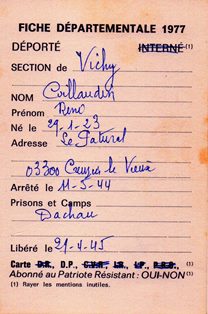 FICHE DÉPARTEMENTALE 1977
DÉPORTÉ INTERNÉ (1)
SECTION de Vichy
NOM Coillaudin
Prénom René
Né le 29-1-23
Adresse Le Patural
03300 Creuzes le Vieux
Arrêté le 11-5-44
Prisons et Camps
Dachau
Libéré le 29-4-45
Carte D.R., D.P., C.V.R., I.R., I.P., P.R.O., (1)
Abonné au Patriote Résistant : OUI-NON (1)
(1) Rayer les mentions inutiles.